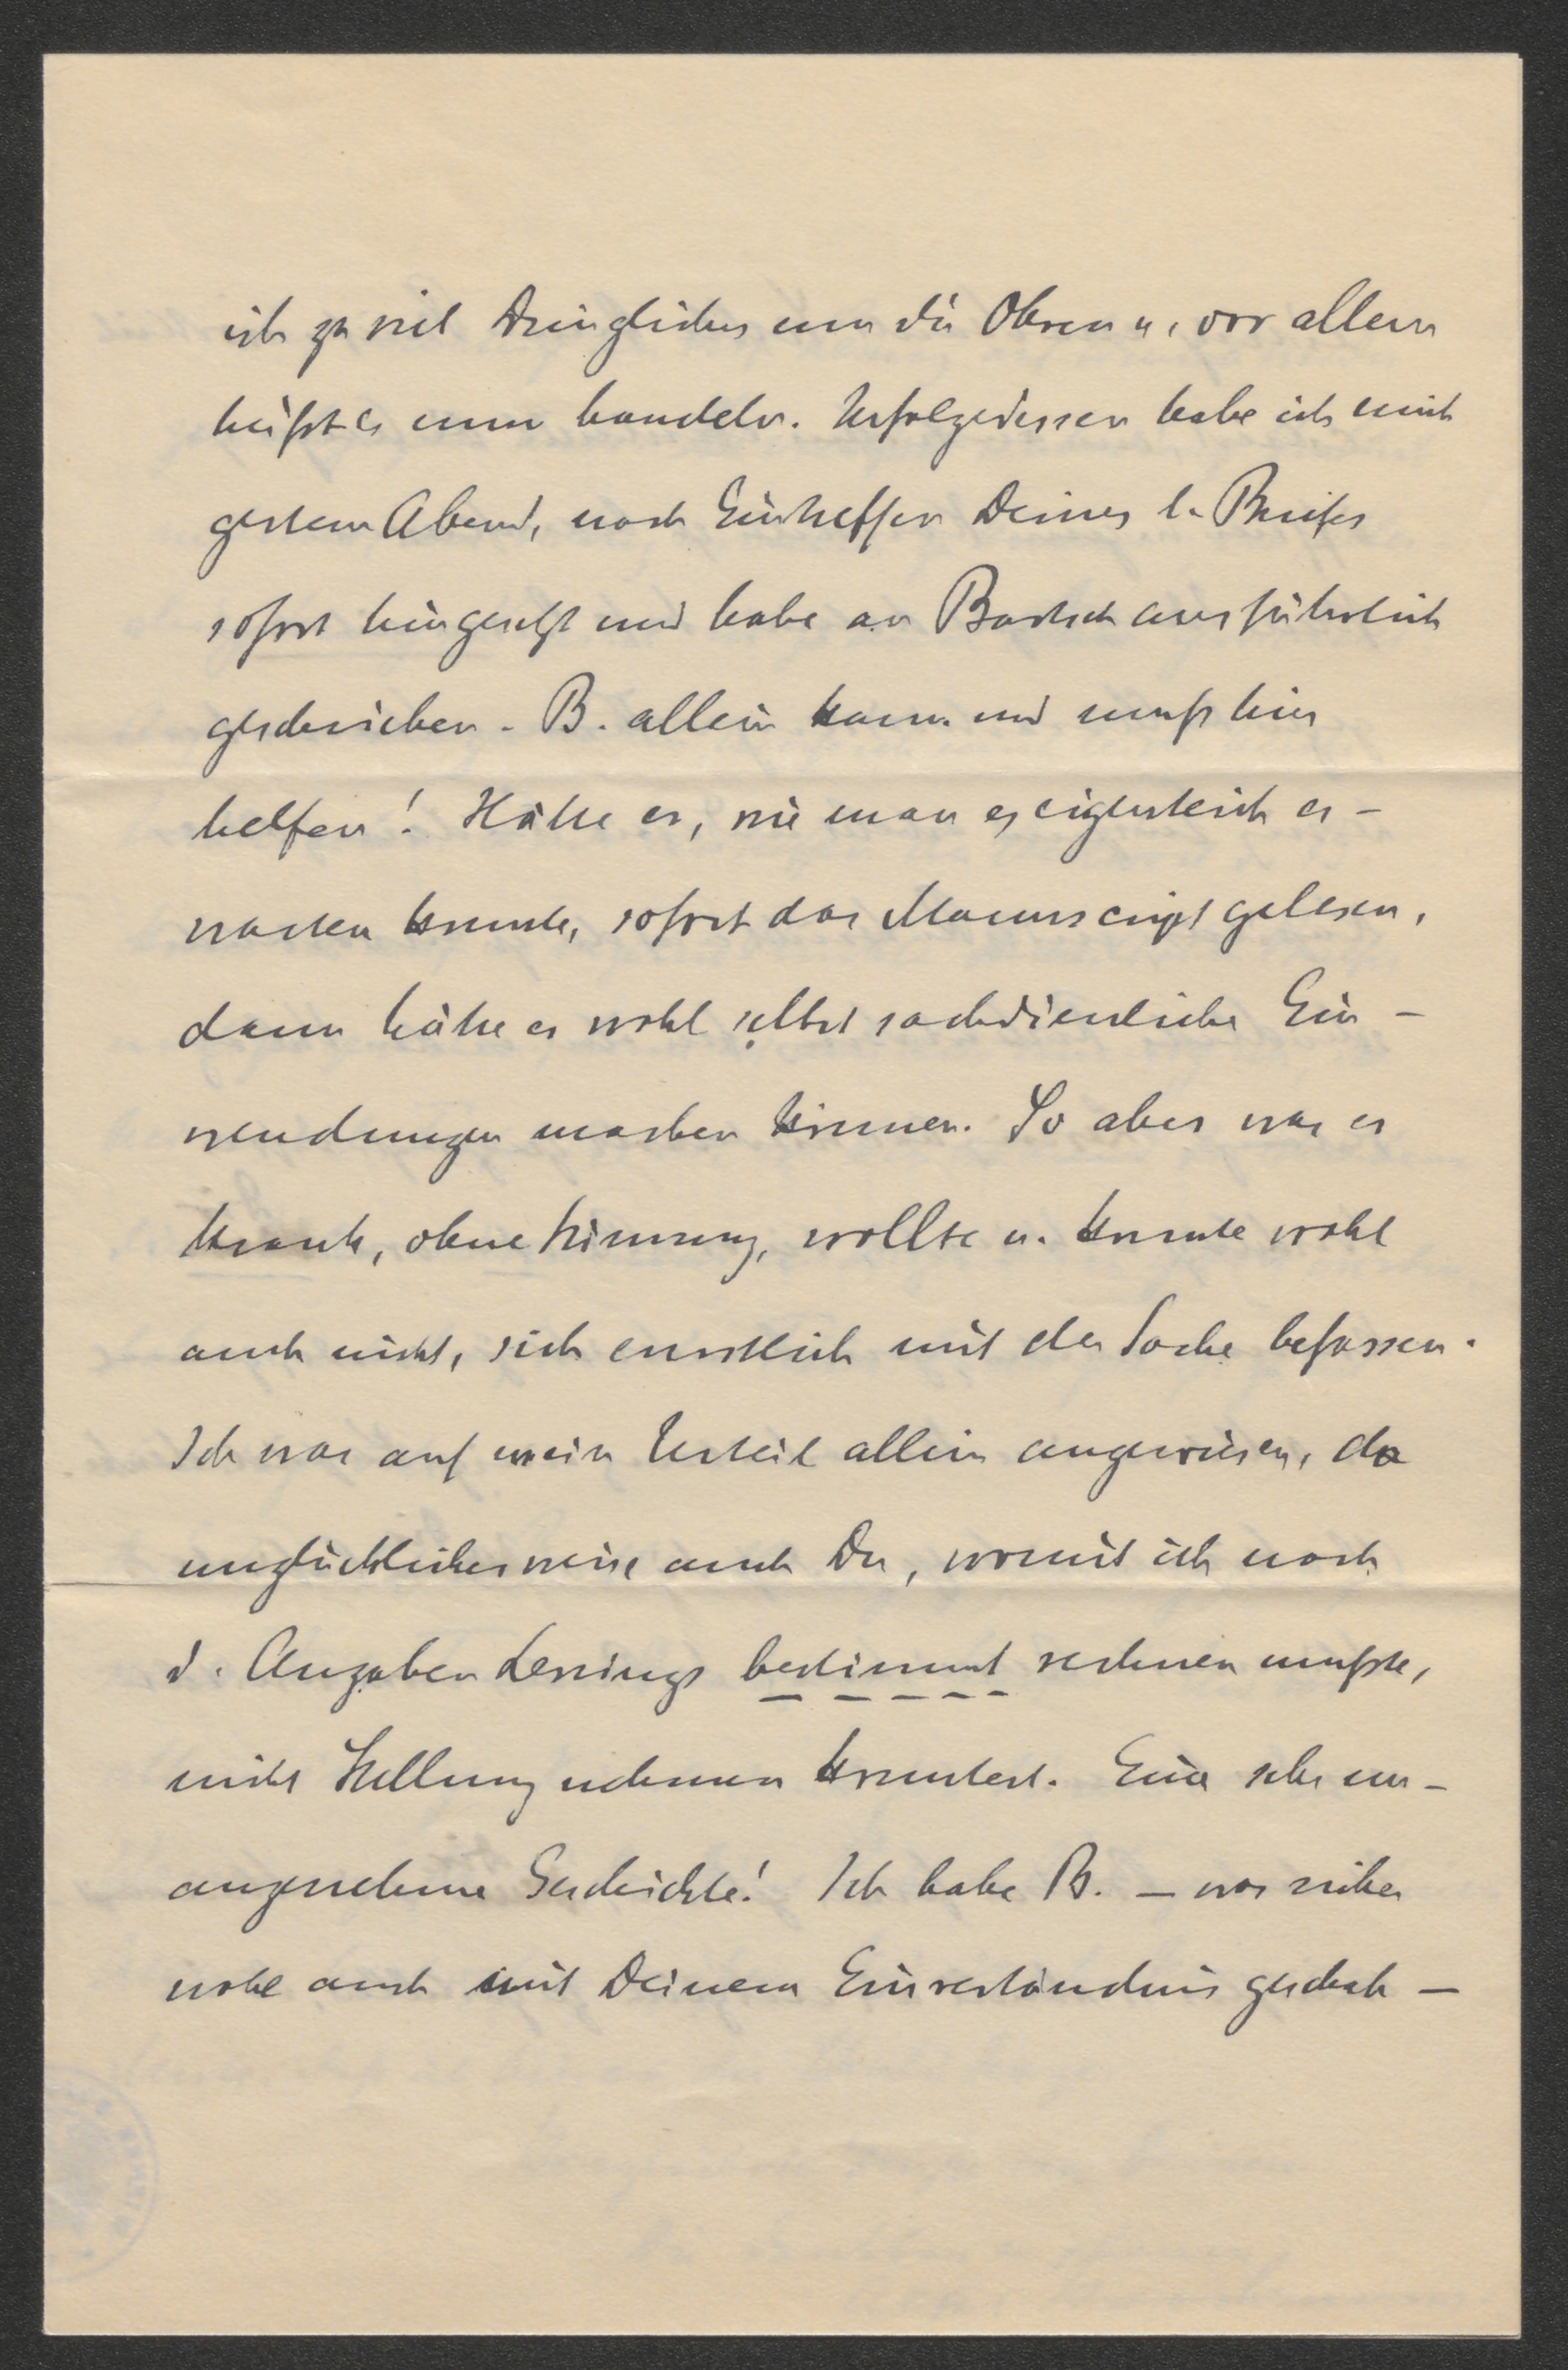 ich zu viel Dringliches um die Ohren u. vor allem
heißt es nun handeln. Infolgedessen habe ich mich
gestern Abend, nach Eintreffen Deines l. Briefes
sofort hingesetzt und habe an Bartsch ausführlich
geschrieben. B. allein kann und muß hier
helfen! Hätte er, wie man es eigentlich er-
warten konnte, sofort das Manuscript gelesen,
dann hätte er wohl selbst sachdienliche Ein-
wendungen machen können. So aber war er
krank, ohne Stimmung, wollte u. konnte wohl
auch nicht, sich ernstlich mit der Sache befassen.
Ich war auf mein Urteil allein angewiesen, da
unglücklicherweise auch Du, womit ich nach
d. Angaben Lessings bestimmt rechnen mußte,
nicht Stellung nehmen konntest. Eine sehr un-
angenehme Geschichte! Ich habe B. – was sicher
wohl auch mit Deinem Einverständnis geschah –